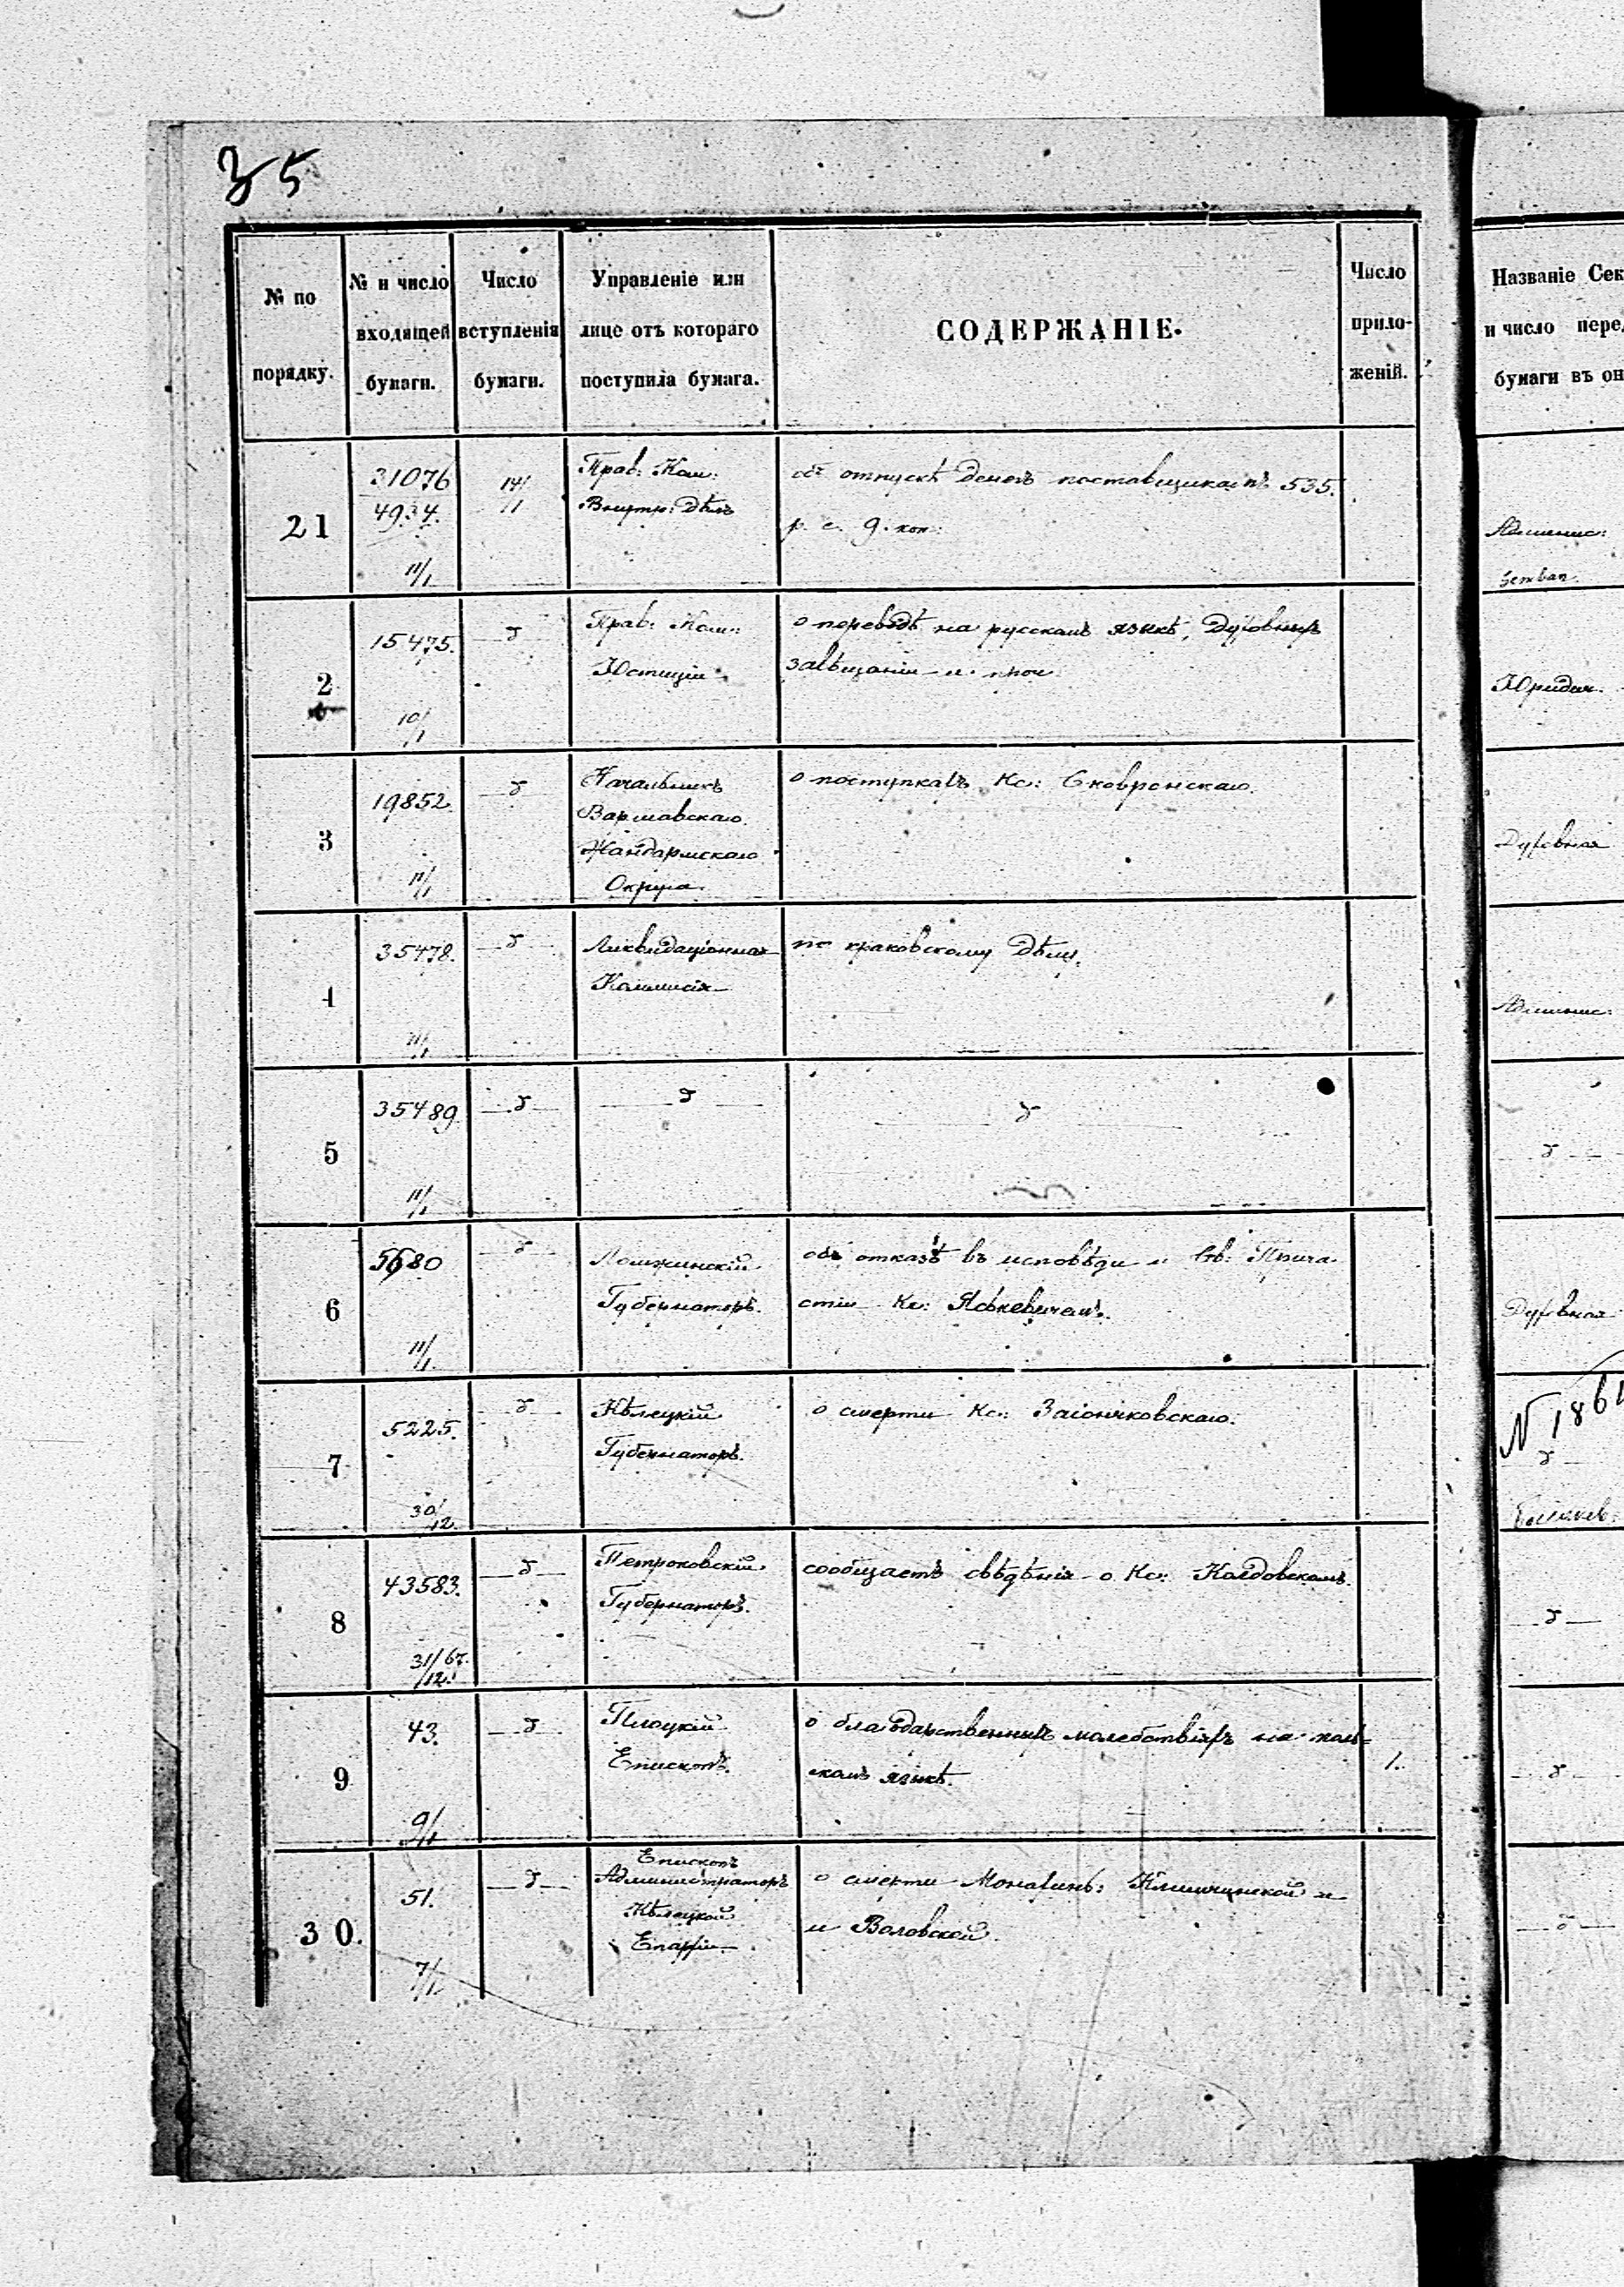 35
№ по
порядку.
№ и число
входящей
бумаги.
Число
вступленія
бумаги.
Управленіе или
лице отъ котораго
поступила бумага.
СОДЕРЖАНІЕ.
Число
прило-
женій.
Названіе Сек
и число пере
бумаги въ он
21
31076
4934.
11/1
14/
Прав: Ком:
Внутр: Дѣлъ
объ отпускѣ денегъ поставщикамъ 535.
р. с. 9. коп:
2
15475.
10/1
Прав: Ком:
Юстиціи
о переводѣ на русскомъ языкѣ, Духовныхъ
завѣщаніи и проч
Юридич.
3
19852
11/1
Начальникъ
Варшавскаго
Жандармскаго
Округа.
о поступкахъ Кс: Сковронскаго.
Духовная
4
35478.
11/1
Ликвидаціонная
Коммисія
по краковскому Дѣлу.
Админис:
5
35489
11/1
6
5680
11/1
Ломжинскій
Губернаторъ.
объ отказѣ въ исповѣди и Св: Прича-
стіи Кс:
Духовная
7
5225.
30/12.
Кѣлецкій
Губернаторъ.
о смерти Кс: Заіончковскаго.
N 186
8
43583.
31/67.
/12.
Петроковскій
Губернаторъ.
сообщаетъ свѣдѣнія о Кс: Колдовскомъ.
9
43.
9/1
Плоцкій
Епископъ.
о благодарственныхъ молебствіяхъ на поль-
скомъ языкѣ.
1.
30.
51.
7/1
Епископъ
Администраторъ
Кѣлецкой
Епархіи
о смерти Монахинь: и
и Воловской.